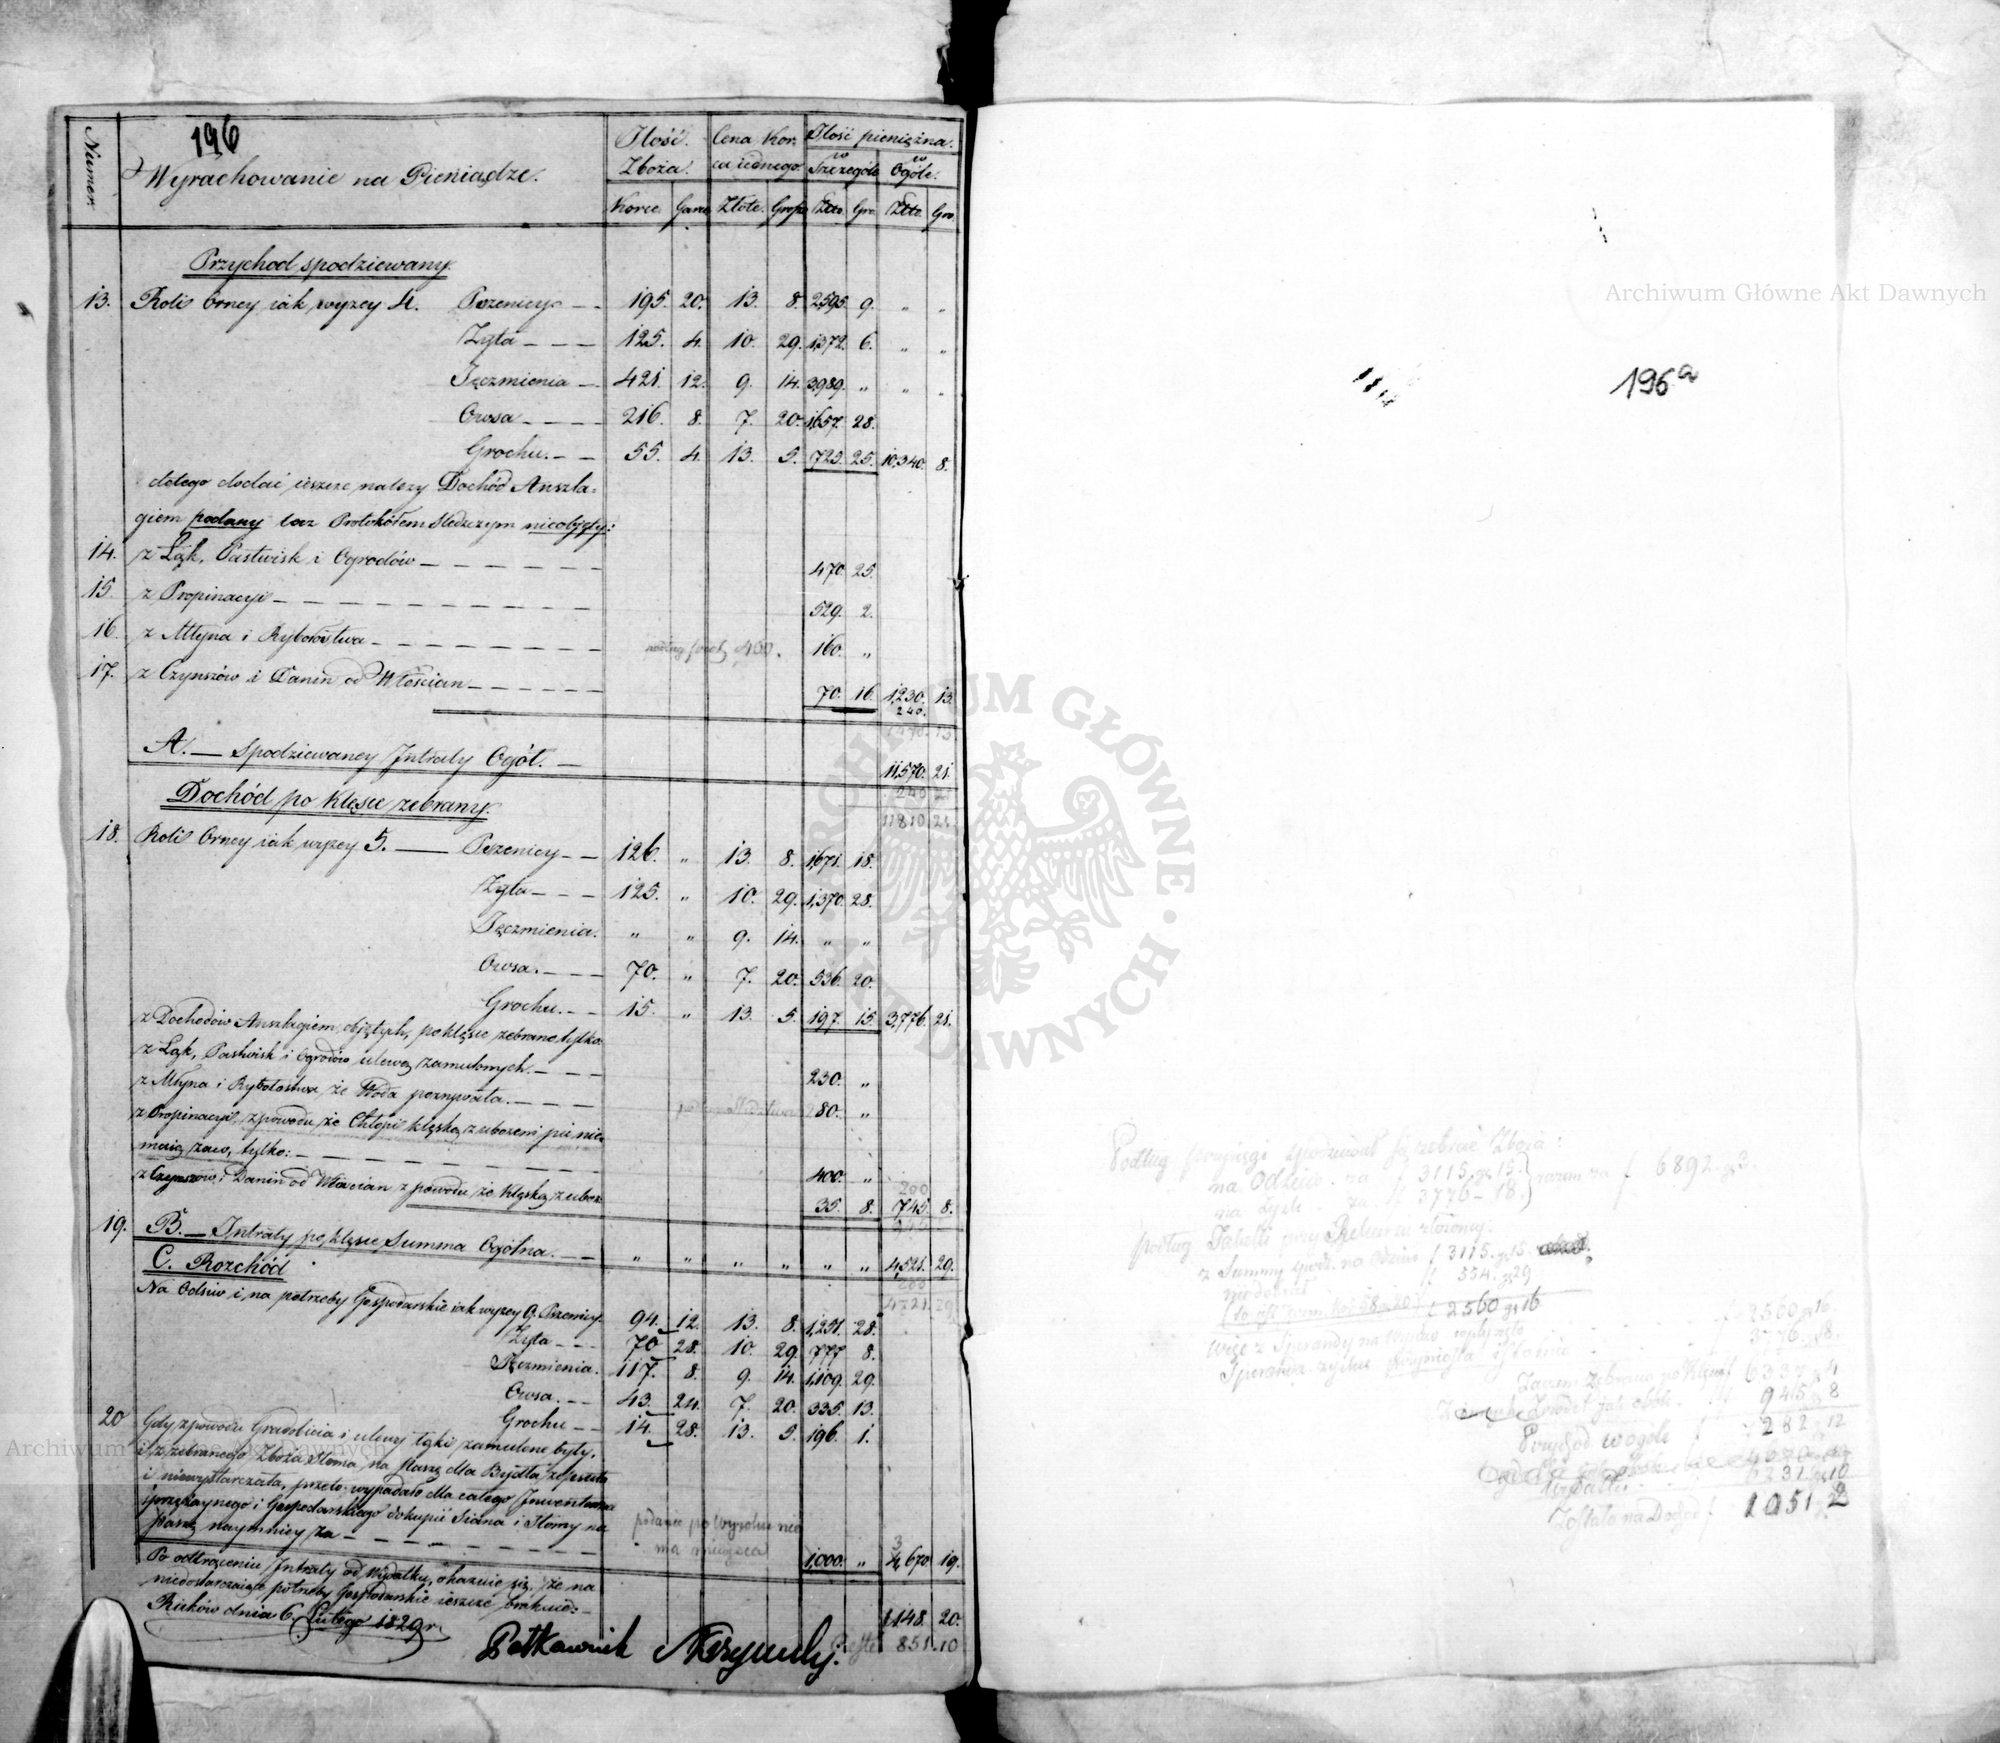 196
Numer
Wyrachowanie na Pieniądze.
Ilość Zboża. Cena Kor: ca iednego. Ilość pieniężna.
w Szczególe w Ogóle.
Korce Garce Złote. Grosze Złto. Gro. Złto. Gro.
Przychod spodziewany.
13. Roli Orney iak wyzey 4. Pszenicy 195. 20. 13. 8. 2,595. 9. " "
Zyta 125. 4. 10. 29. 1,372. 6. " "
Jęczmienia 421. 12. 9. 14. 3,989. " " "
Owsa 216. 8. 7. 20. 1,657. 28.
Grochu. 55. 4. 13. 5. 725. 25. 10,340. 8.
dotego dodać ieszcze nalezy Dochód Anszla=
giem podany lecz Protokółem śledczym nieobjęty:
14. z Łąk, Pastwisk i Ogrodów 470. 25.
15. z Propinacyi 529. 2.
16. z Młyna i Rybołostwa 160. "
17. z Czynszów i Danin od Włościan 70. 16. 1,230. 13.
240.
A. Spodziewaney Intraty Ogół. 11,570. 21.
240
11810. 21.
Dochód po klęsce zebrany.
18. Roli Orney iak wyzey 5. Pszenicy 126. " 13. 8. 1,671. 18.
Zyta 125. " 10. 29. 1,370. 28.
Jęczmienia. " " 9. 14. " "
Owsa. 70. " 7. 20. 536. 20.
Grochu. 15. " 13. 5. 197. 15. 3,776. 21.
z Dochodów Anszlagiem objętych, po klęsce zebrano tylko:
z Łąk, Pastwisk i Ogrodów ulewą zamulonych. 230. "
z Młyna i Rybołostwa, że Woda pozrywała. 80. "
z Propinacyi, z powodu że Chłopi klęską zubożeni pić nie
maią zaco, tylko: 400. "
200
z Czynszów i Danin od Włościan z powodu że klęską zuboz: 35. 8. 745. 8.
19. B. Intraty po klęsce Summa Ogólna. " " " " " " 4,521. 29.
200
4721. 29
C. Rozchód
Na Odsiew i na potrzeby Gospodarskie iak wyzey 9. Pszenicy. 94. 12. 13. 8. 1,251. 28.
Zyta 70 28. 10. 29. 777. 8.
Jęczmienia. 117. 8. 9. 14. 1,109. 29.
Owsa. 43. 24. 7. 20. 335. 13.
Grochu 14. 28. 13. 5. 196. 1.
20 Gdy z powodu Gradobicia i ulewy łąki zamulone były,
i z zebranego Zboża słoma na paszę dla Bydła zepsuta
i niewystarczała, przeto wypadało dla całego Inwentarza
i Gospodarskiego dokupić Siana i Słomy na
paszę naymniey za 1,000. " 4,670. 19.
3
podane po wysokie nie
ma mieysca
Po odtrąceniu Intraty od Wydatku, okazuie się, że na
niedostarczaiące potrzeby Gospodarskie ieszcze brakuie: 1,148. 20.
Kraków dnia 6. Lutego 1829 r.
851.10
Archiwum Główne Akt Dawnych
196a
ARCHIWUM GŁÓWNE AKT DAWNYCH
na Odsiew na 3115. gr 15.
3776 - 18. razem za f 6892. gr 3.
podług
z Summy na Odsiew f 3115. gr 15.
554. gr 29
f 2560 gr 16
2560 gr 16.
3776. gr 18.
6337 gr 4
945 gr 8
Przychod wogóle 7282 gr 12
6231. gr 10
Zostało na Dochod f 1051. 2
Archiwum Główne Akt Dawnych